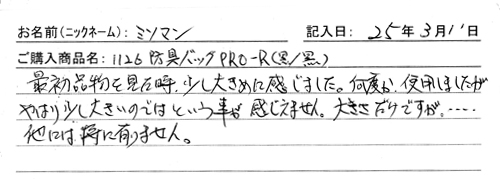 お名前(ニックネーム): ミソマン 記入日: 25年3月11日
ご購入商品名: 1126 防具バッグPRO-R(黒/黒)
最初品物を見た時、少し大きめに感じました。何度か、使用しましたが
やはり少し大きいのではという事が感じえません。大きさだけですが、‥‥
他には、特に有りません。